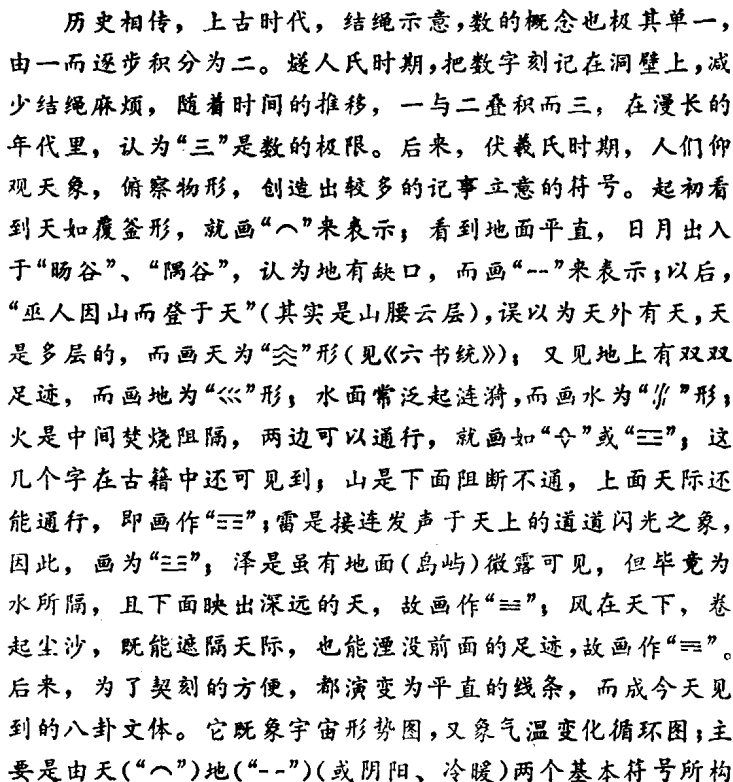 历史相传，上古时代，结绳示意，数的概念也极其单一，
由一而逐步积分为二。燧人氏时期，把数字刻记在洞壁上，减
少结绳麻烦，随着时间的推移，一与二叠积而三，在漫长的
年代里，认为“三”是数的极限。后来，伏羲氏时期，人们仰
观天象，俯察物形，创造出较多的记事立意的符号。起初看
到天如覆釜形，就画“⌒”来表示；看到地面平直，日月出入
于“旸谷”、“隅谷”，认为地有缺口，而画“--”来表示；以后，
“巫人因山而登于天”（其实是山腰云层），误以为天外有天，天
是多层的，而画天为“”形（见《六书统》）；又见地上有双双
足迹，而画地为“巛”形；水面常泛起涟漪，而画水为“”形；
火是中间焚烧阻隔，两边可以通行，就画如“”或“☲”；这
几个字在古籍中还可见到；山是下面阻断不通，上面天际还
能通行，即画作“☶”；雷是接连发声于天上的道道闪光之象，
因此，画为“☳”；泽是虽有地面（岛屿）微露可见，但毕竟为
水所隔，且下面映出深远的天，故画作“☱”；风在天下，卷
起尘沙，既能遮隔天际，也能湮没前面的足迹，故画作“”。
后来，为了契刻的方便，都演变为平直的线条，而成今天见
到的八卦文体。它既象宇宙形势图，又象气温变化循环图；主
要是由天（“⌒”）地（“--”）（或阴阳、冷暖）两个基本符号所构